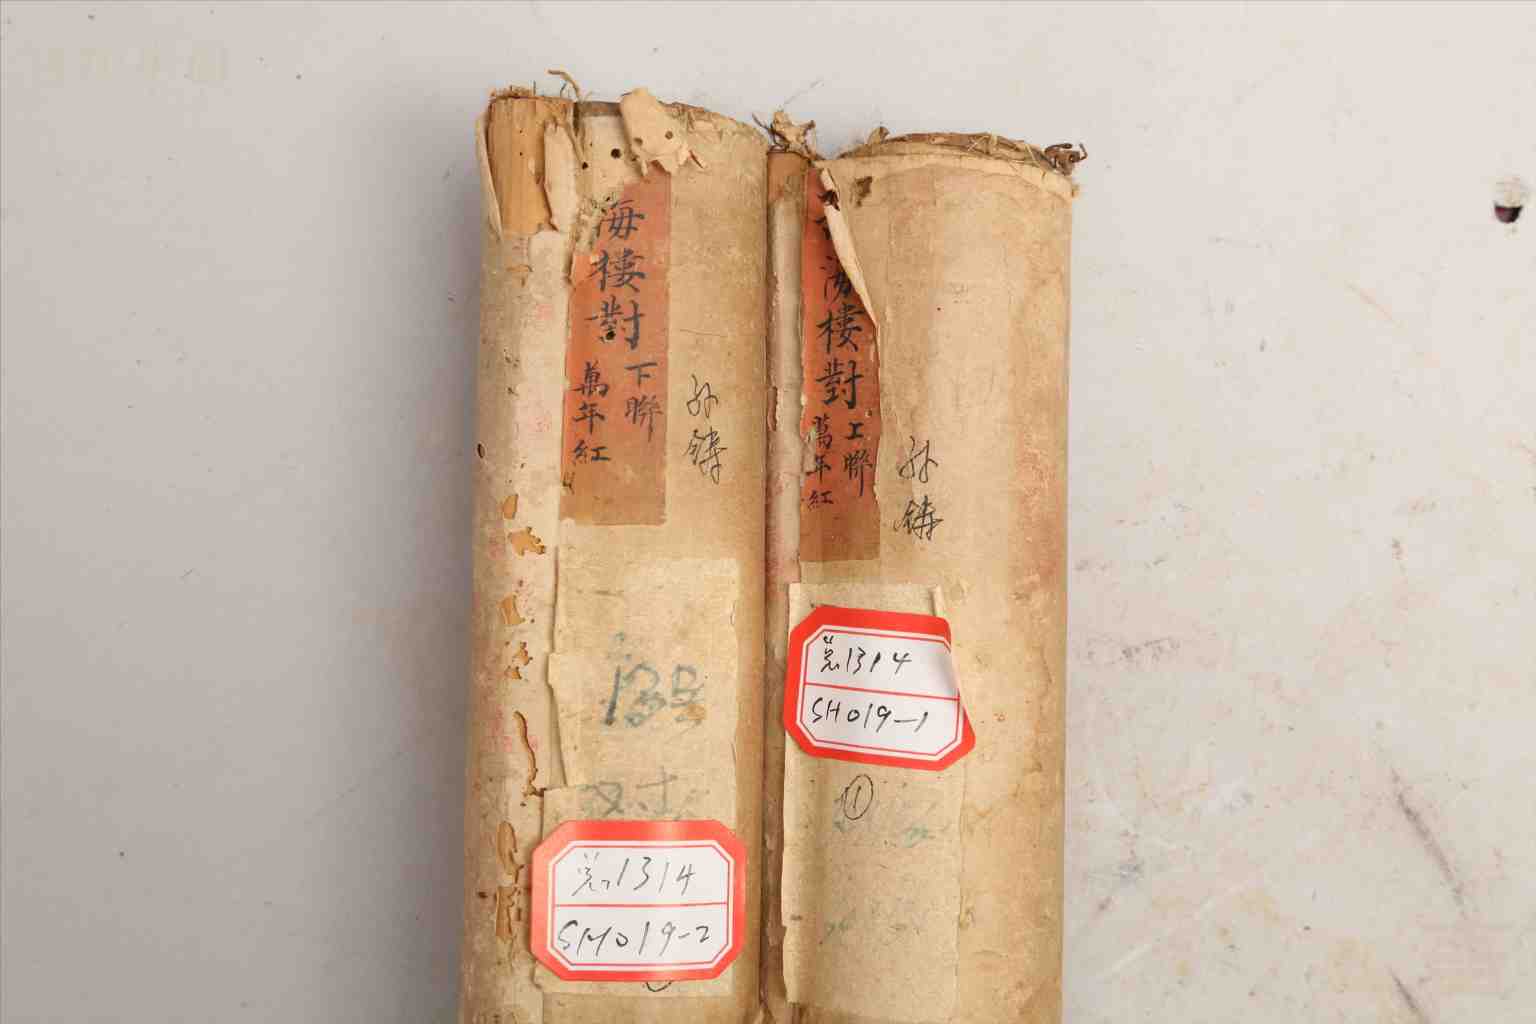 海樓對
下聯
萬年紅
孙鑄
138
对
览1314
SH019-2
海樓對
上聯
萬年紅
孙鑄
览1314
SH019-1
①